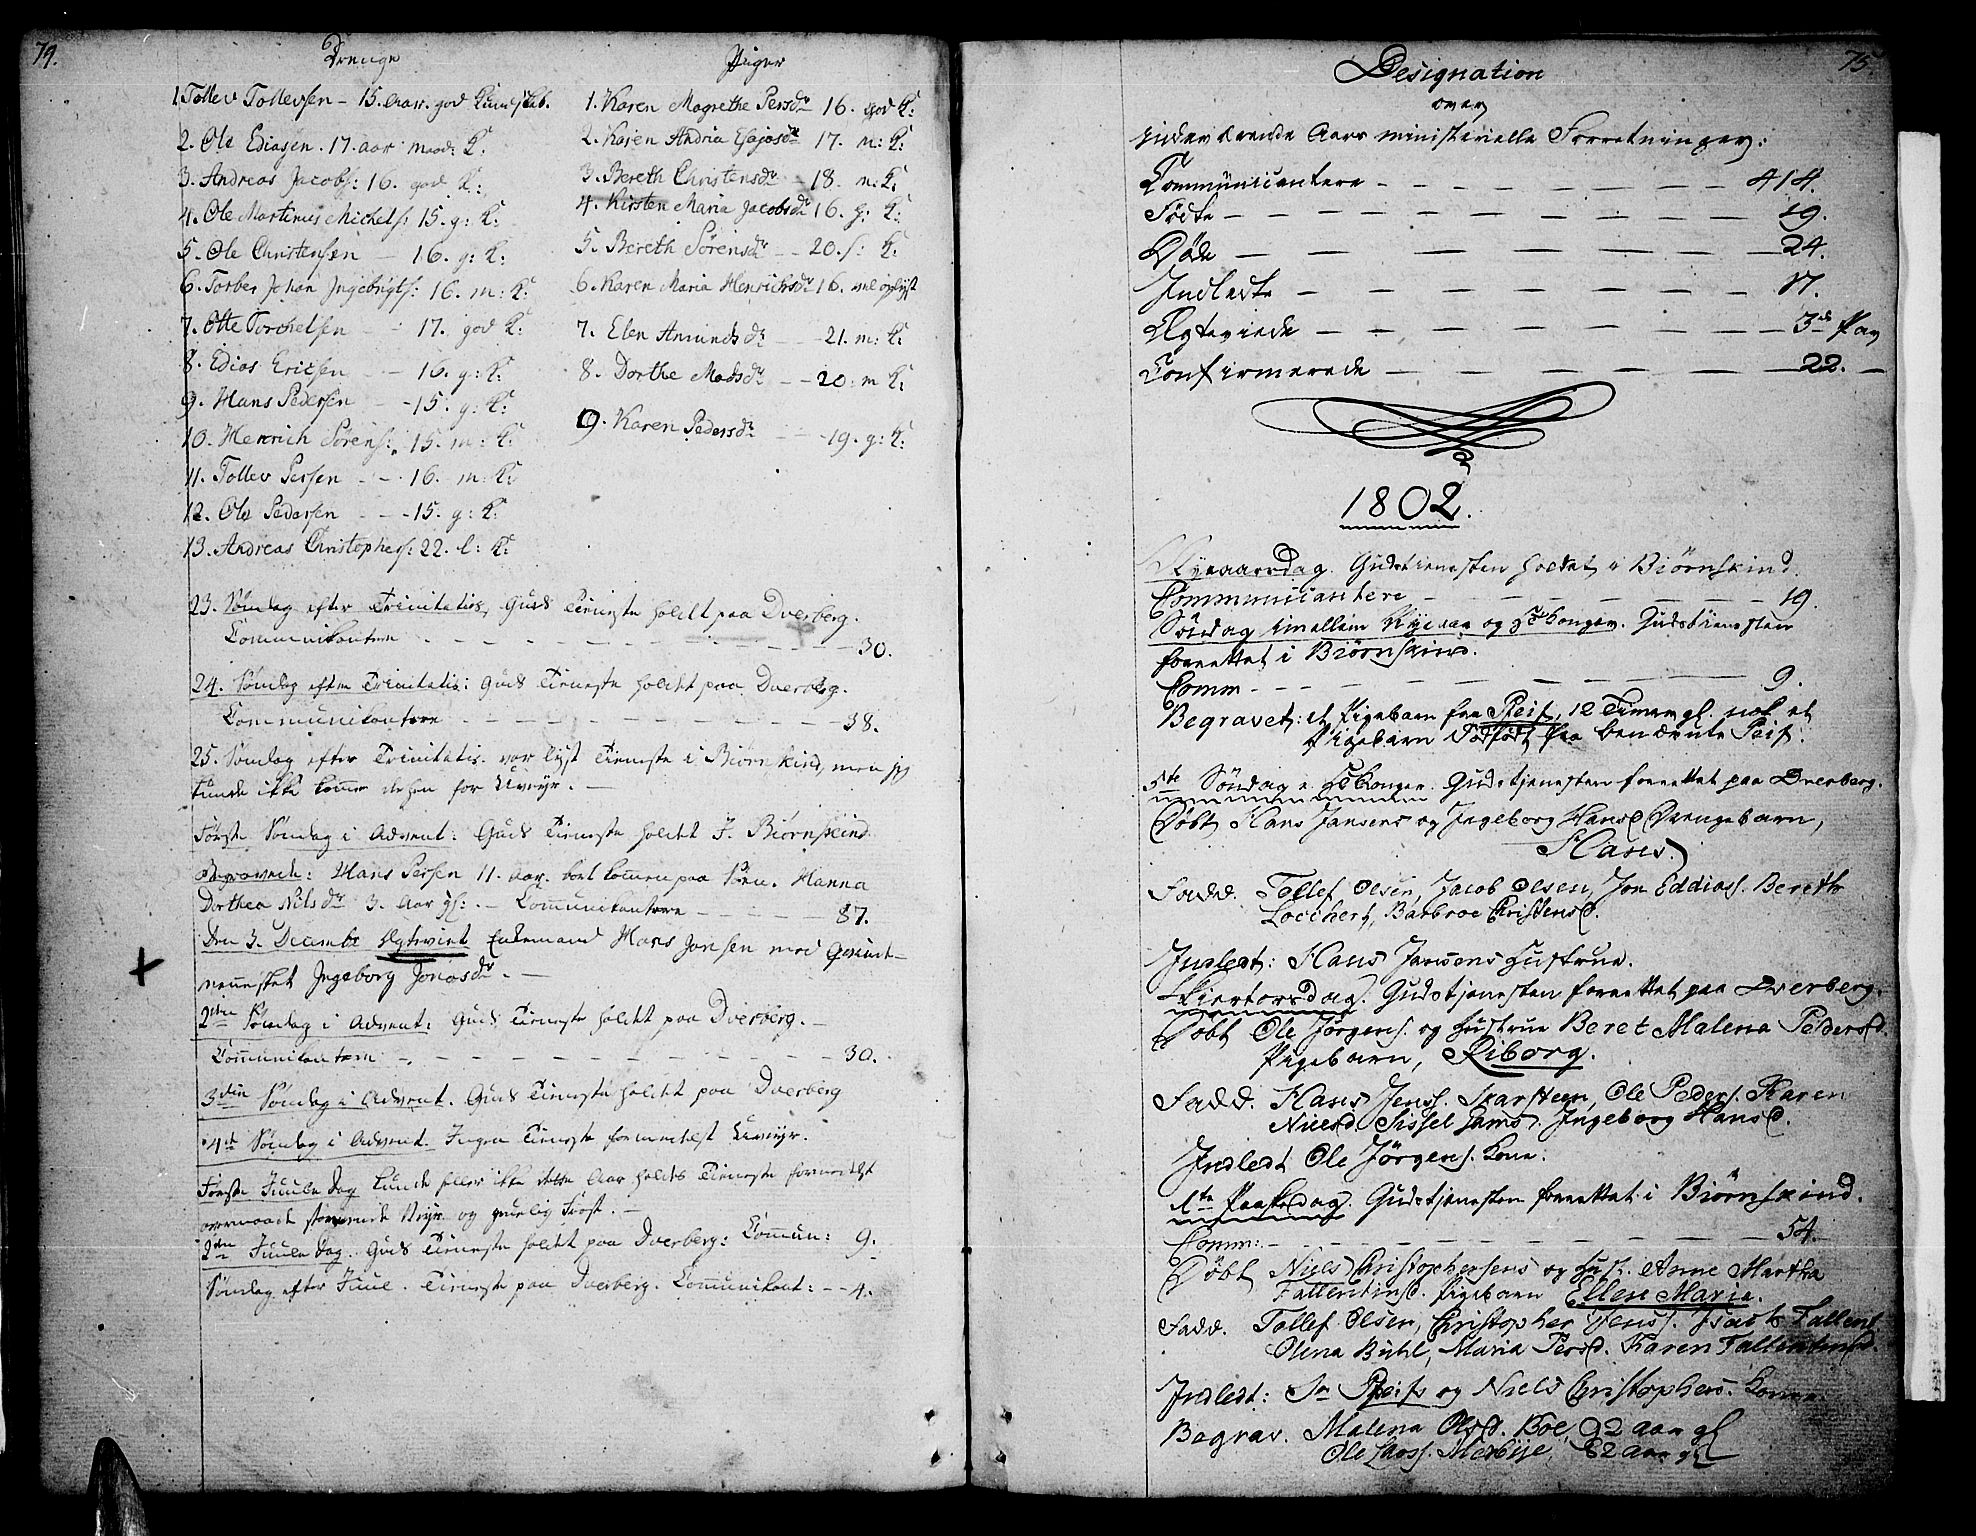 74.
Drenge
1. Tollev Tollevsen - 15. Aar. god Kundskab.
2. Ole Ediasen. 17. aar maad: K:
3. Andreas Jacobs: 16. god K:
4. Ole Martinus Michels: 15. g: K:
5. Ole Christensen - 16. g: K:
6. Torber Johan Ingebrigts: 16. m: K:
7. Otte Torchelsen - - 17. god K:
8. Edias Ericsen - - 16. g: K:
9. Hans Pedersen - - 15. g: K:
10. Henrich Sörens: 15. m: K:
11. Tollev Persen - - 16. m: K:
12. Ole Pedersen - - - 15. g: K:
13. Andreas Christophers: 22. l: K:
Piger
1. Karen Magrethe Persdr 16. god K:
2. Karen Andria Esajasdr 17. m: K:
3. Bereth Christensdr - 18. m: K:
4. Kirsten Maria Jacobsdr 16. g: K:
5. Bereth Sörensdr - - 20. s: K:
6. Karen Maria Henrichsdr 16. vel oplyst
7. Elen Amundsdr - - - 21. m: K:
8. Dorthe Madsdr - - 20. m K:
9. Karen Pedersdr - - - 19. g: K:
23. Søndag efter Trinitatis, Guds Tieneste holdt paa Dverberg.
Communikantere - - - - - 30.
24. Søndag efter Trinitatis: Guds Tieneste holdt paa Dverberg.
Communikantere - - - - - 38.
25. Søndag efter Trinitatis. var lyst Tieneste i Biørnskind, men jeg
kunde ikke komme dehen for Uveyr. -
Første Søndag i Advent: Guds Tieneste holdt i Biørnskind
Begravede: Hans Persen 11. Aar. bort kommen paa Søen. Hanna
Dorthea Nilsdr 3. Aar gl: - Communikantere - - - - 87.
Den 3. Decembr Ægteviet Enkemand Hans Jansen med Qvinde-
mennisket Ingeborg Jonasdr. -
2den Søndag i Advent: Guds Tieneste holdt paa Dverberg. -
Communikantere - - - - - 30.
3die Søndag i Advent. Guds Tieneste holdt paa Dverberg
4de Søndag i Advent. Ingen Tieneste formedelst Uveyr.
Første Juule Dag kunde heller ikke dette Aar holdes Tieneste formedelst
overmaade stormende Veyr og gruelig Frost. -
2den Juule Dag. Guds Tieneste holdt paa Dverberg: Commun: 9.
Søndag efter Juul. Tieneste paa Dverberg. Communikant: - - 4.
75.
Designation
over
indeværende Aars ministerielle Forretninger:
Communicantere - - - - - 414.
Födte - - - - - 19.
Døde - - - - - 24.
Indledte - - - - - 17.
Ægteviede - - - - - 3de Par
Confirmerede - - - - - 22. -
1802.
Nyeaarsdag. Gudstienesten holdet i Biørnskind.
Communicantere - - - - - 19.
Söndag imellem Nyeaar og H. 3 Konger. Gudstienesten
forrettet i Biørnskind.
Comm - - - - - 9.
Begravet: et Pigebarn fra Steif, 12 Timer gl. nok et
Pigebarn Dödfödt fra benævnte Steif.
5te Söndag e. H. 3 Konger. Gudstjenesten forrettet paa Dverberg.
Døbt Hans Jansens og Ingeborg Hansd. Drengebarn,
Hans.
Fadd. Tollef Olsen, Jacob Olsen, Jon Eddiass. Berethe
Lockhert, Barbroe Christensd.
Indledt: Hans Jansens Hustrue.
Skiertorsdag. Gudstjenesten forrettet paa Dverberg.
Døbt Ole Jörgens. og Hustrue Beret Malena Pedersd.
Pigebarn, Riborg.
Fadd. Hans Jenss. Skarsteen, Ole Peders. Karen
Nielsd. Sissel Jams. Ingeborg Hansd.
Indledt Ole Jörgens. Kone.
1te Paaskedag. Gudstjenesten forrettet i Biørnskind.
Comm: - - - - - 54.
Døbt Niels Christophersens og Hust. Anne Martha
Fallentinsd. Pigebarn Ellen Marie.
Fadd. Tollef Olsen, Christopher Jenss. Isach Fallent.
Olena Buhl, Maria Persd. Karen Fallentinsd.
Indledt: Sr Steifs og Niels Christophers. Koner.
Begrav. Malena Olsd. Boe, 92 aar gl
Ole Larss. 82 aar gl